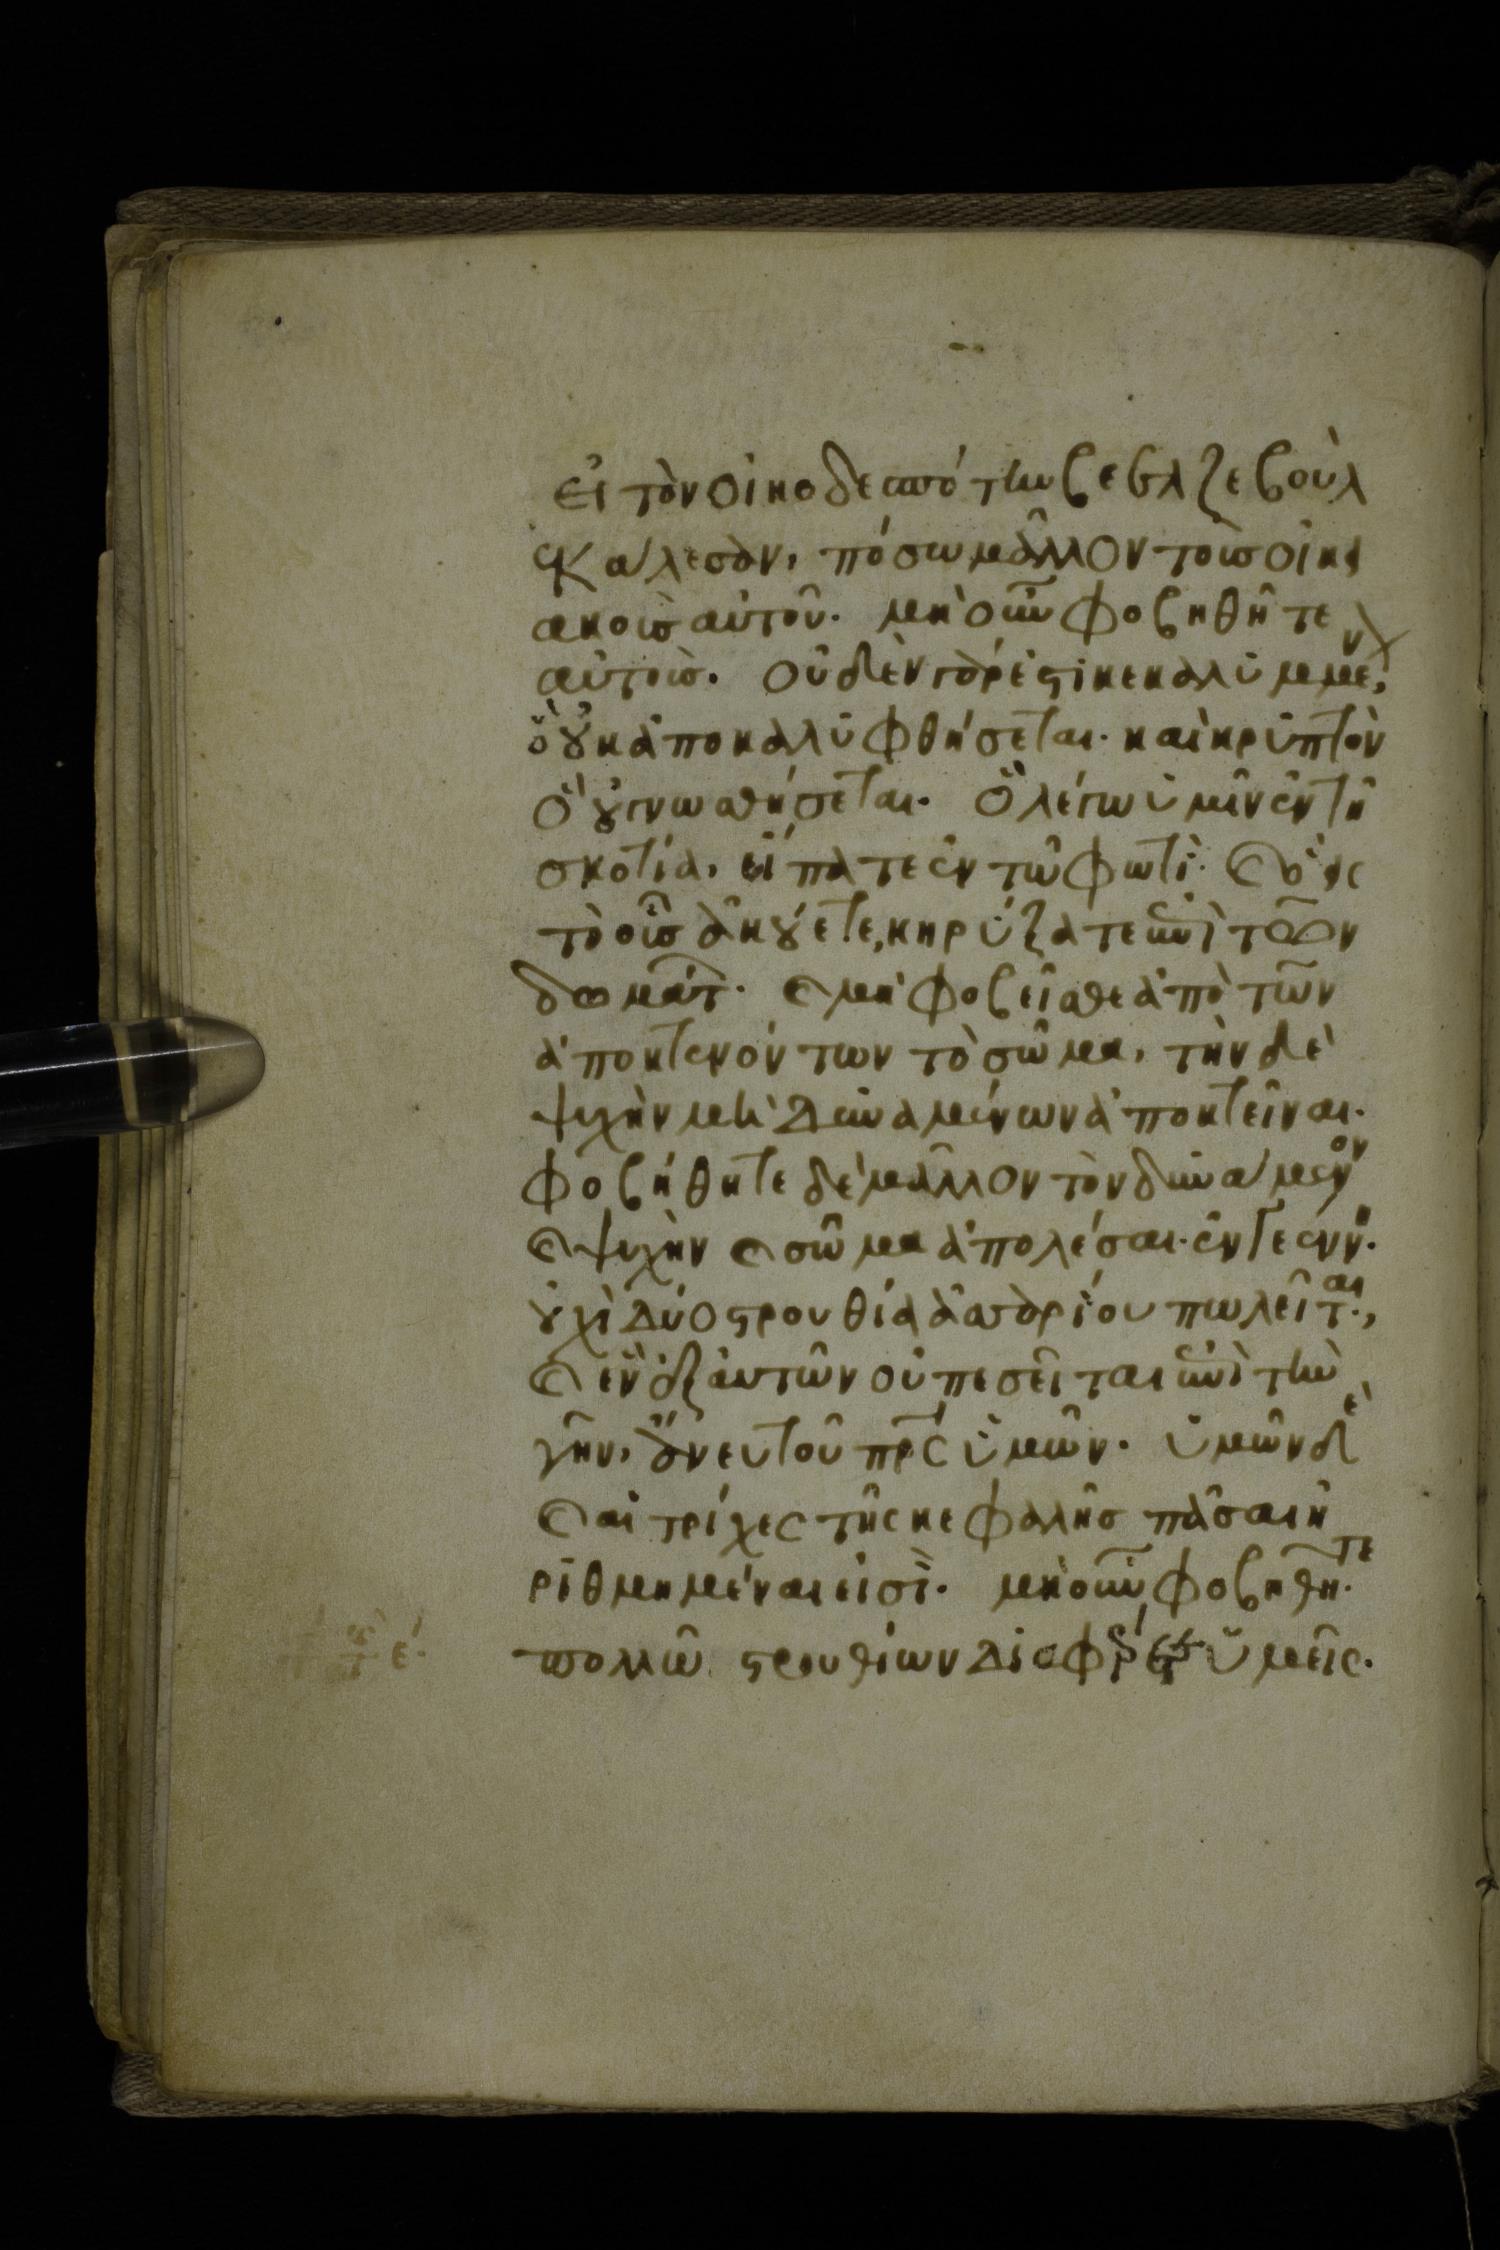 εἰ τὸν οἰκοδεσπότην βεβλζεβοὺλ
ἐκάλεσαν, πόσω μᾶλλον τοὺς οἰκι
ακοὺς αὐτοῦ. μὴ οὖν φοβηθῆτε
αὐτοὺς. οὐδὲν γάρ ἐστι κεκαλυμμέν,
ὃ οὐκ ἀποκαλυφθήσεται. καὶ κρυπτὸν
ὃ οὐ γνωσθήσεται. ὃ λέγω ὑμῖν ἐν τῆ
σκοτία, εἴπατε ἐν τῶ φωτί. καὶ ὃ εἰς
τὸ οὖς ἀκούετε, κηρύξατε ἐπὶ τῶν
δωμάτ. καὶ μὴ φοβεῖσθε ἀπὸ τῶν
ἀποκτενόντων τὸ σῶμα, τὴν δὲ
ψυχὴν μὴ δυναμένων ἀποκτεῖναι.
φοβήθητε δὲ μᾶλλον τὸν δυνάμενον
καὶ ψυχὴν καὶ σῶμα ἀπολέσαι ἐν γεένν.
οὐχὶ δύο στρουθία ἀσσαρίου πωλεῖται,
καὶ ἓν ἐξ αὐτῶν οὐ πεσεῖται ἐπὶ τὴν
γῆν, ἄνευ τοῦ πρς ὑμῶν. ὑμῶν δὲ
καὶ αἱ τρίχες τῆς κεφαλῆς πᾶσαι ἠ
ριθμημέναι εἰσὶ. μὴ οὖν φοβηθητε.
πολλῶ στρουθίων διαφέρετε ὑμεῖς.